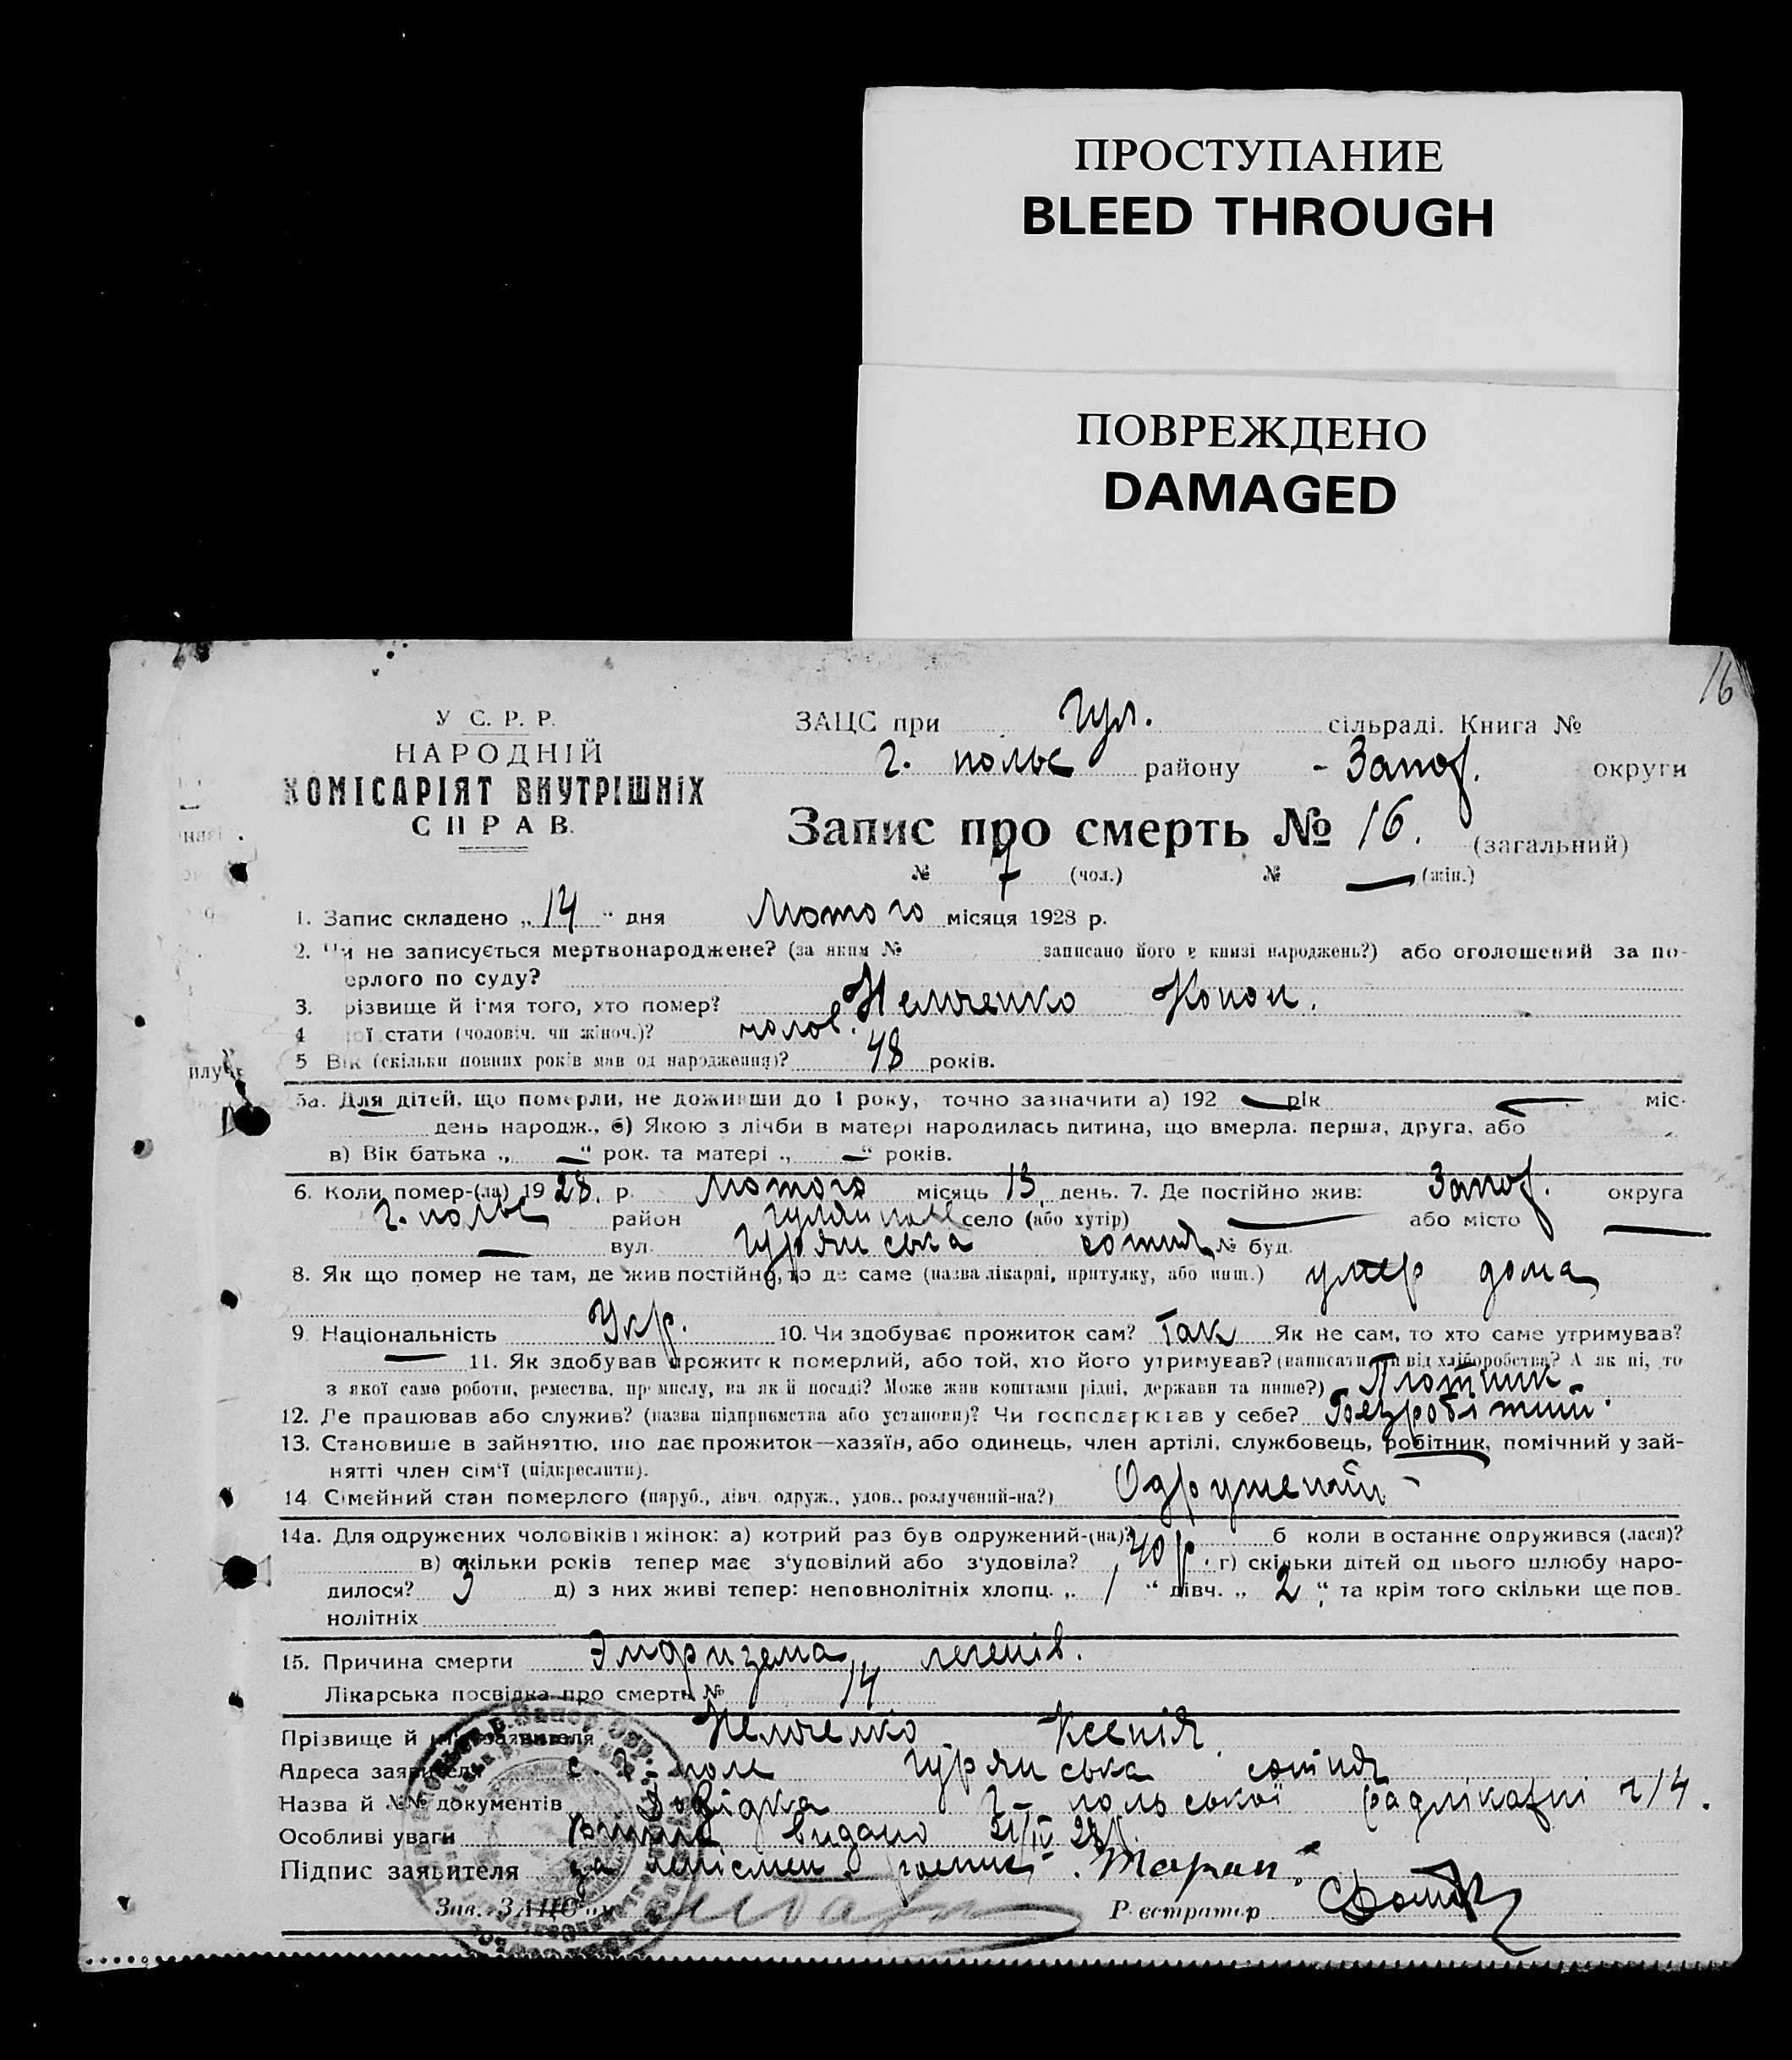 ПРОСТУПАНИЕ
BLEED THROUGH
ПОВРЕЖДЕНО
DAMAGED
16
У С. Р. Р.
НАРОДНІЙ
КОМІСАРІЯТ ВНУТРІШНІХ
СПРАВ.
ЗАЦС при Гул. сільраді. Книга №
Г. польс району - Запор. округи
Запис про смерть № 16. (загальний)
№ 7 (чол.) № — (жін.)
1. Запис складено „14" дня Лютого місяця 1928 р.
2. Чи не записується мертвонароджене? (за яким № записано його в книзі народжень?) або оголошений за по-
ерлого по суду?
3. різвище й ім'я того, хто помер? Немченко Конон.
4 ої стати (чоловіч. чи жіноч.)? чолов.
5 Вік (скільки повних років мав од народження)? 48 років.
5а. Для дітей, що померли, не доживши до 1 року, точно зазначити а) 192 — рік — міс.
день народж., б) Якою з лічби в матері народилась дитина, що вмерла: перша, друга, або
в) Вік батька „ — " рок. та матері „ — " років.
6. Коли помер-(ла) 1928. р. Лютого місяць 13 день. 7. Де постійно жив: Запор. округа
Г. польс район Гуляйполе село (або хутір) — або місто —
— вул. Гурянська сотня № буд.
8. Як що помер не там, де жив постійно, то де саме (назва лікарні, притулку, або инш.) умер дома
9. Національність Укр. 10. Чи здобуває прожиток сам? Так Як не сам, то хто саме утримував?
— 11. Як здобував прожиток померлий, або той, хто його утримував? (написати чи від хліборобства? А як ні, то
з якої саме роботи, ремества, промислу, на якій посаді? Може жив коштами рідні, держави та инше?) Плотник
12. Де працював або служив? (назва підприємства або установи)? Чи господарював у себе? Безробітний.
13. Становище в зайняттю, що дає прожиток—хазяїн, або одинець, член артілі, службовець, робітник, помічний у зай-
нятті член сім'ї (підкреслити).
14. Сімейний стан померлого (паруб., дівч. одруж., удов., розлучений-на?) Одружений
14а. Для одружених чоловіків і жінок: а) котрий раз був одружений-(на)? б коли востаннє одружився (лася)?
в) скільки років тепер має з'удовілий або з'удовіла? 40 р. г) скільки дітей од цього шлюбу наро-
дилося? 3 д) з них живі тепер: неповнолітніх хлопц. „ 1 " дівч. „ 2 " та крім того скільки ще пов-
нолітніх
15. Причина смерти Эмфизема легенів.
Лікарська посвідка про смерть № 14
Прізвище й ім'я заявителя Немченко Ксенія
Адреса заявителя с. Г-поле Гурянська сотня
Назва й №№ документів Довідка Г- польської радлікарні ч/4.
Особливі уваги видано 21/IV 28 р.
Підпис заявителя за неписмен. Таран.
Зав. ЗАЦС'ом Реєстратор